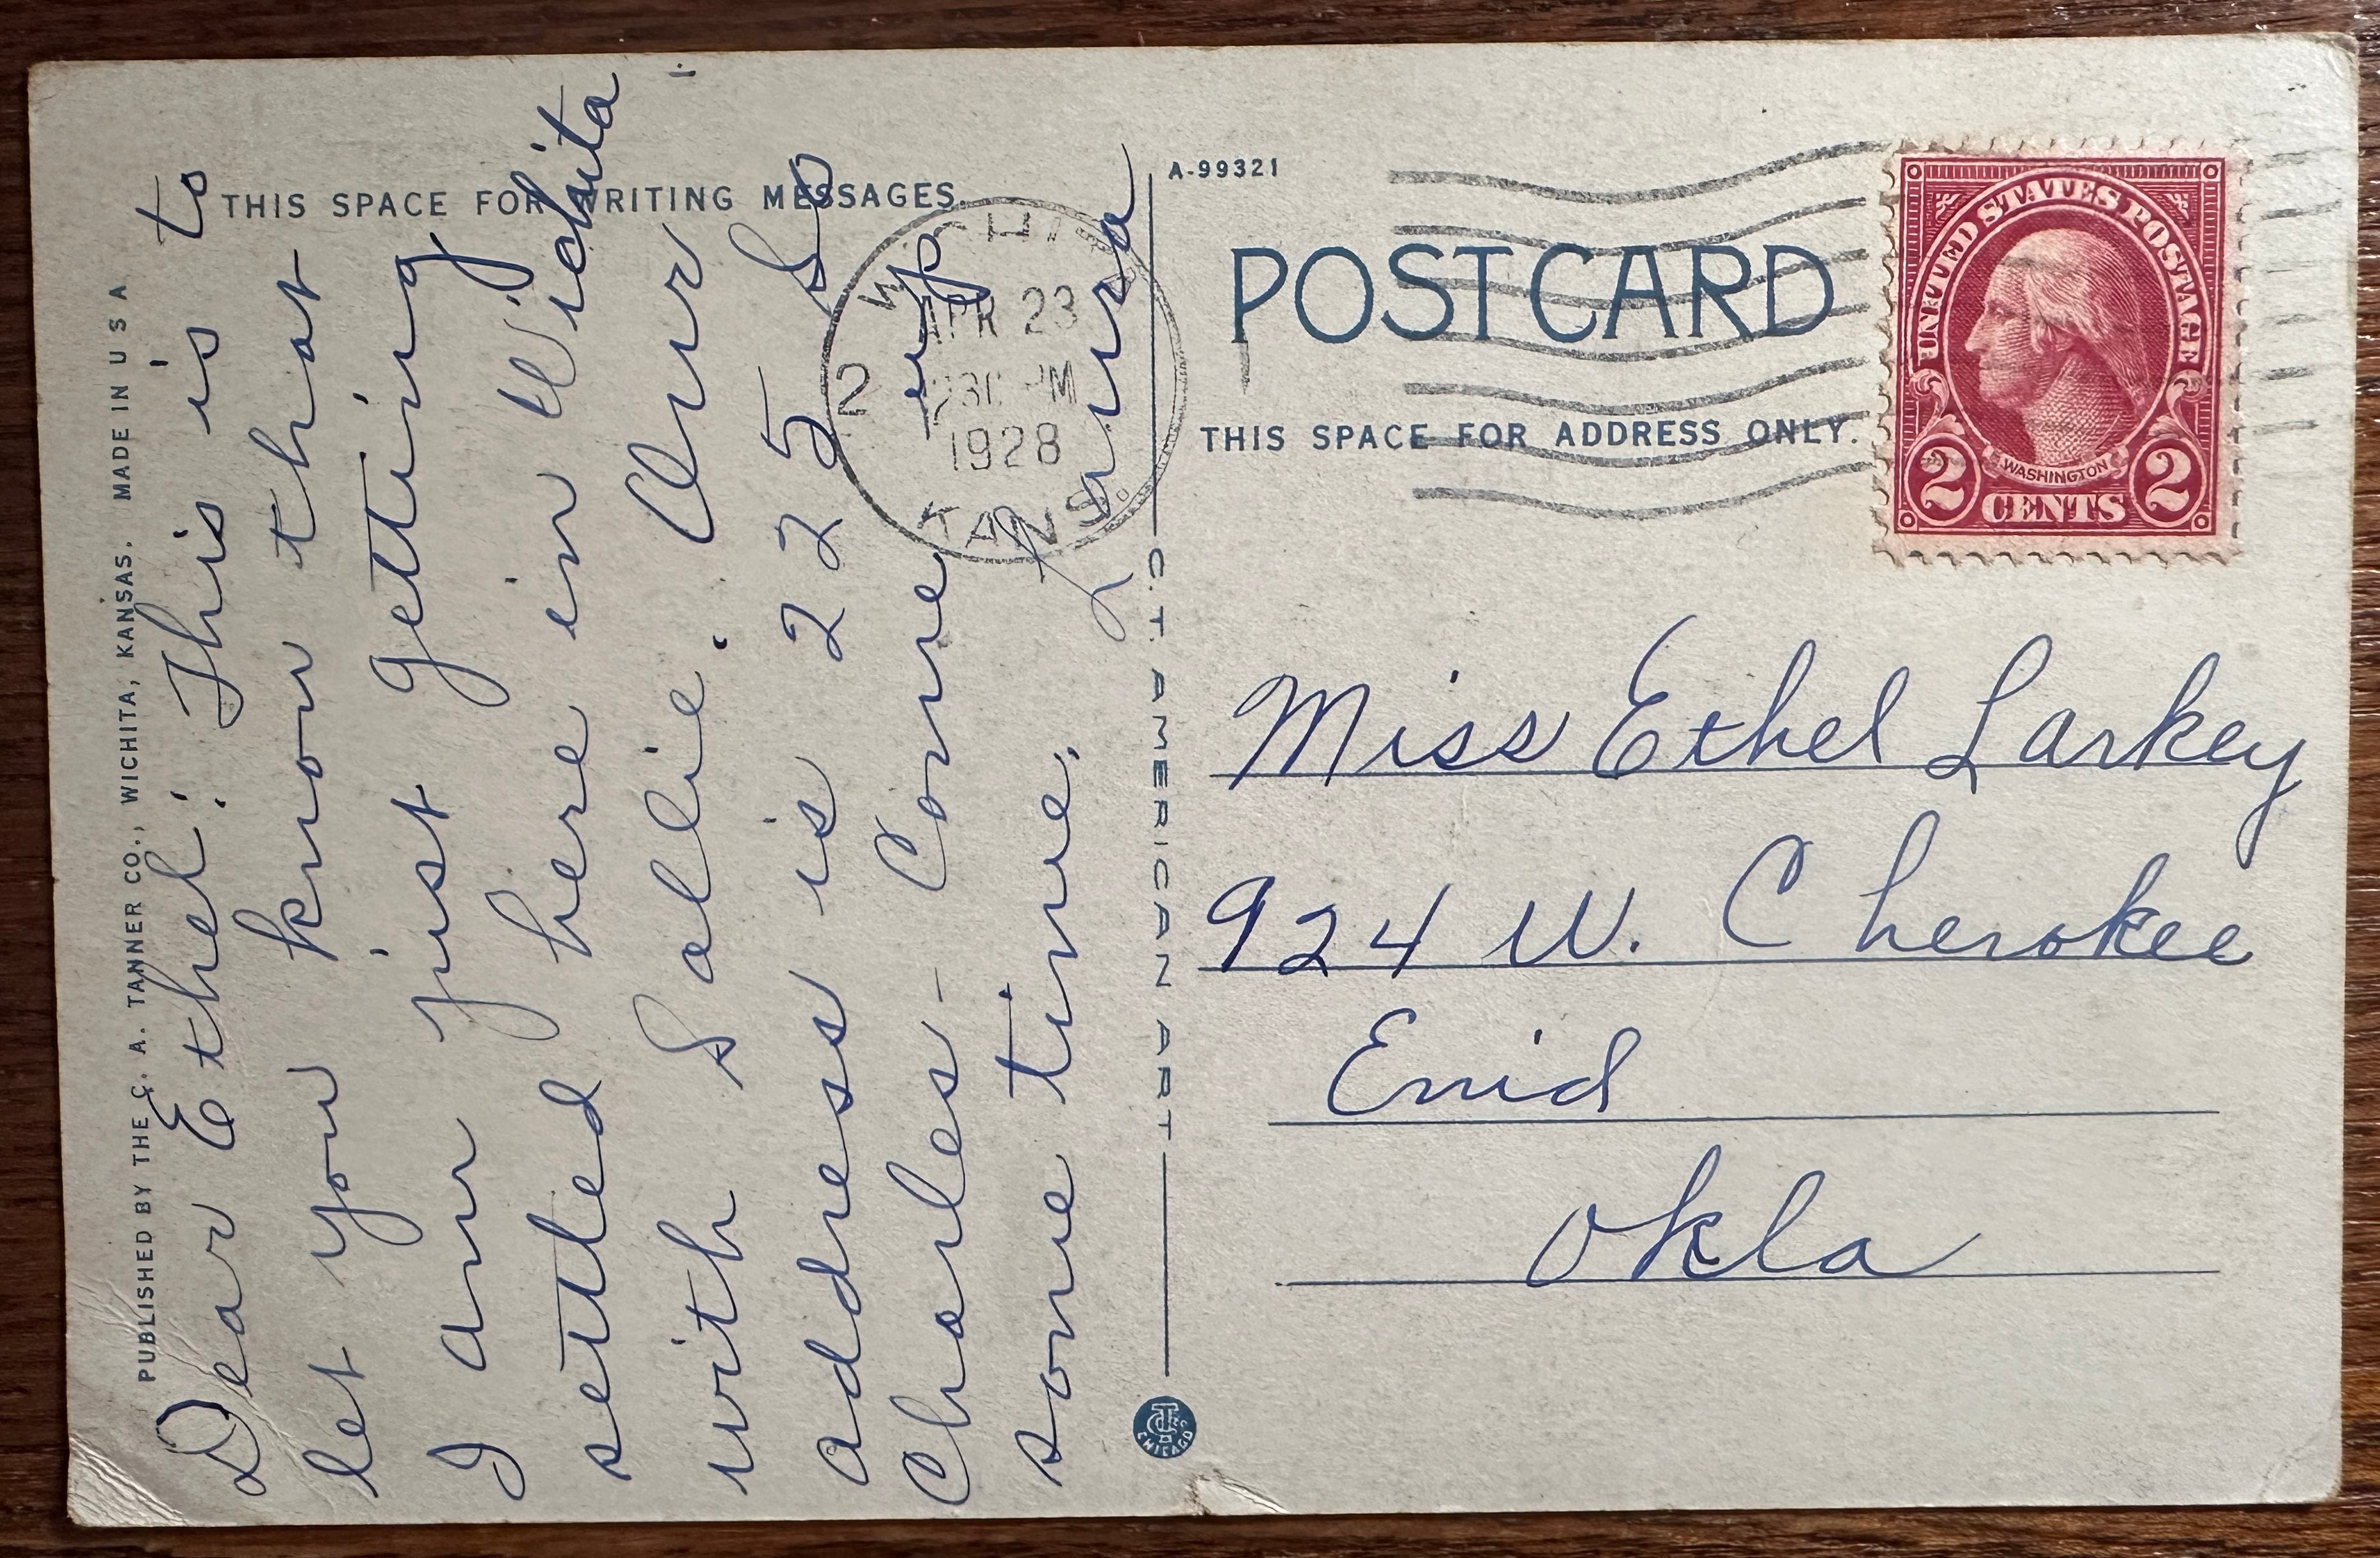 THIS SPACE FOR WRITING MESSAGES.
Dear Ethel: This is to
let you know that
I am just getting
settled here in Wichita
with Sallie. Our
address is 225 So
Charles - Come up
some time.
Laura
PUBLISHED BY THE C. A. TANNER CO., WICHITA, KANSAS. MADE IN U S A
APR 23
230 PM
1928
KANS.
2
C. T. AMERICAN ART
CHICAGO
A-99321
POST CARD
THIS SPACE FOR ADDRESS ONLY.
UNITED STATES POSTAGE
WASHINGTON
2 CENTS 2
Miss Ethel Larkey
924 W. Cherokee
Enid
Okla